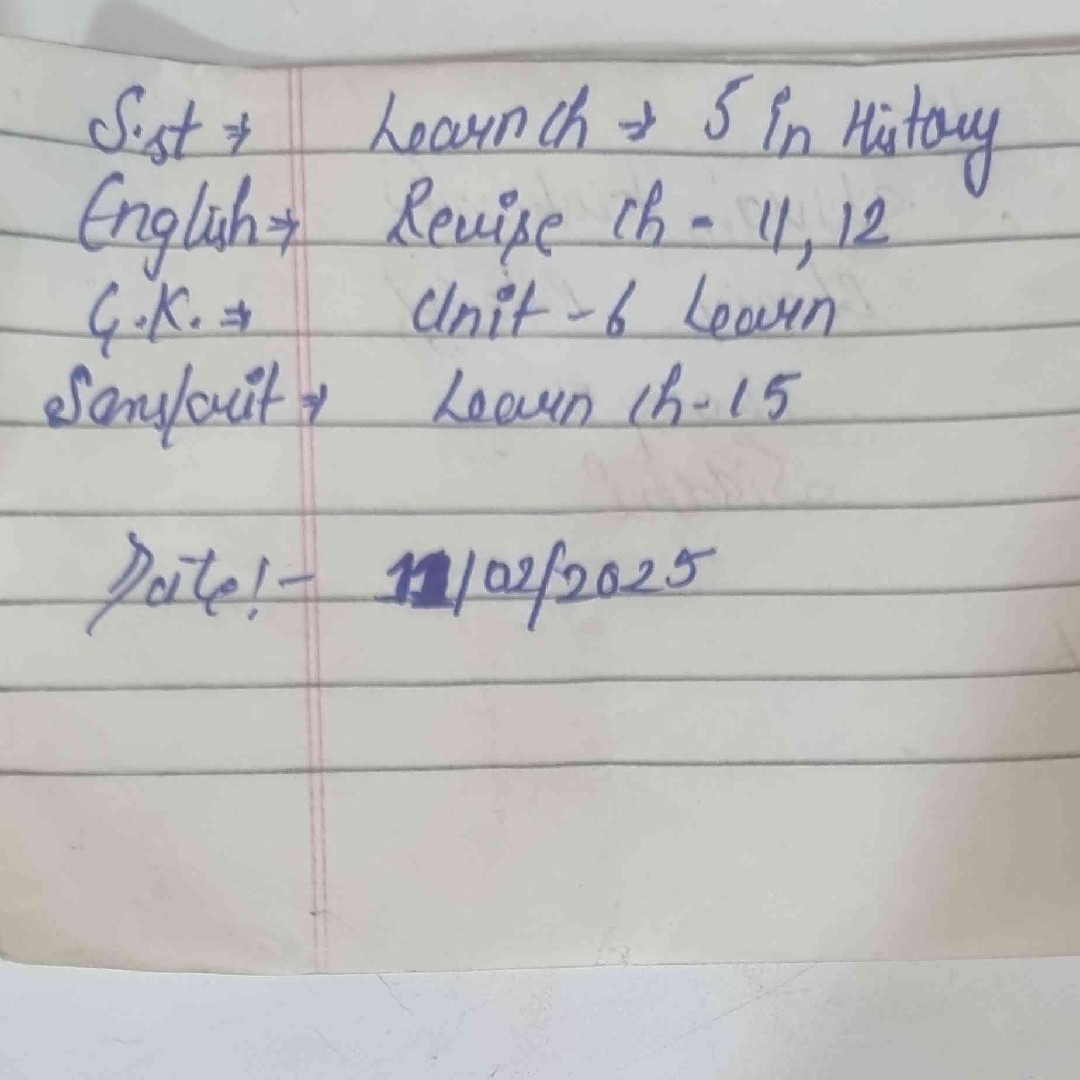 S.st → Learn ch → 5 in History
English → Revise ch - 11, 12
G.K. → Unit - 6 Learn
Sanskrit → Learn ch - 15
Date :- 11/02/2025